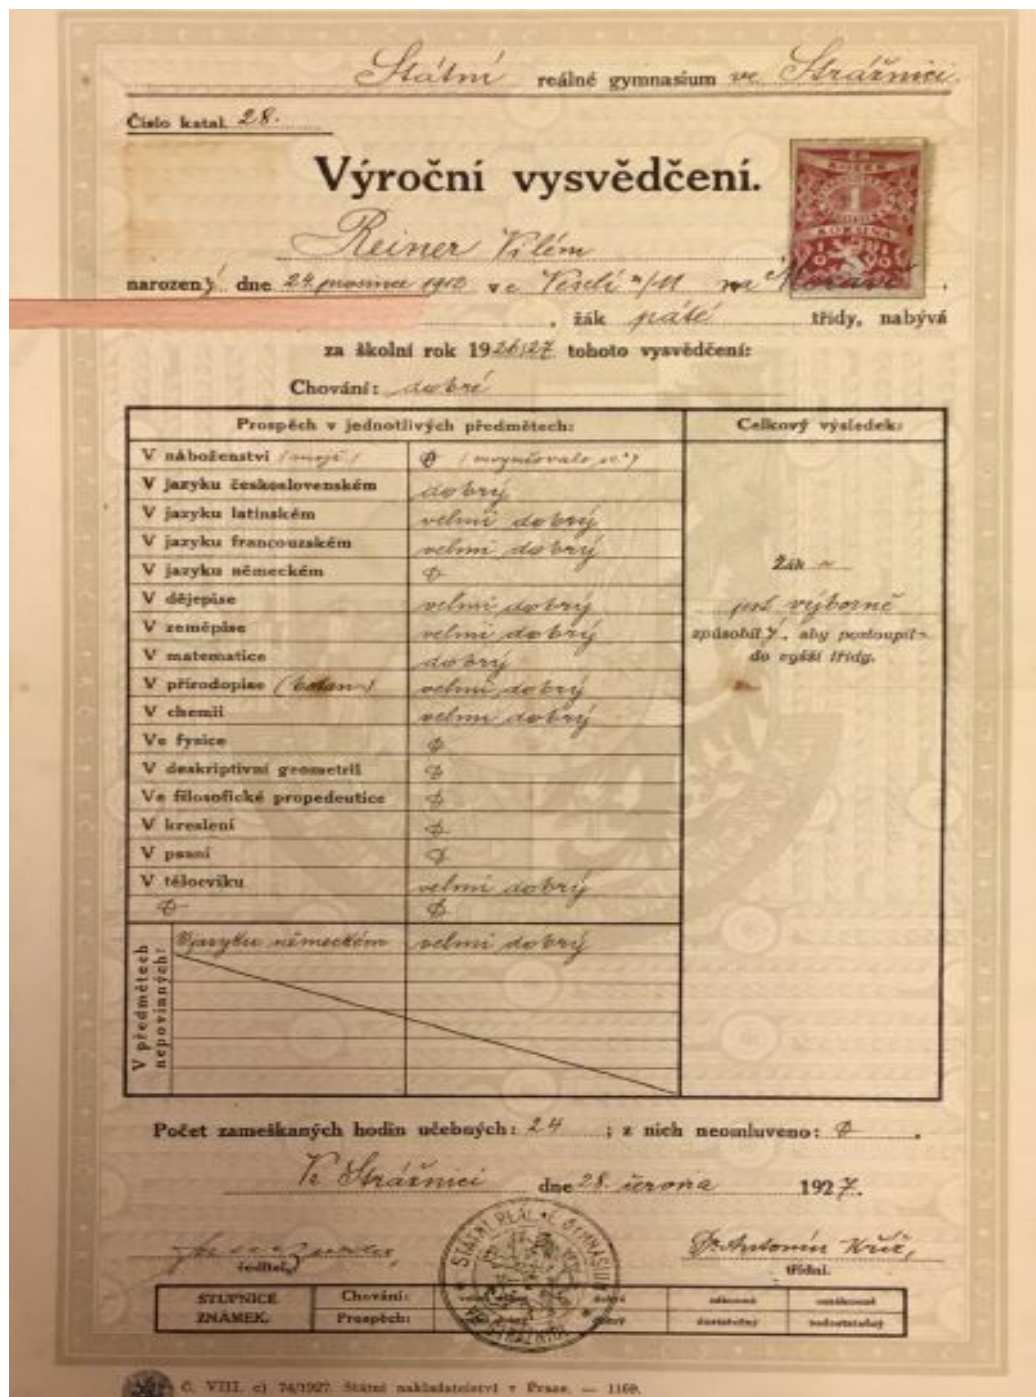 Státní reálné gymnasium ve Strážnici.
Číslo katal. 28.
Výroční vysvědčení.
KOLEK
1
KORUNA
Reiner Vilém
narozený dne 24. prosince 1910 ve Veselí n/M na Moravě,
, žák páté třídy, nabývá
za školní rok 1926/27 tohoto vysvědčení:
Chování: dobré
Prospěch v jednotlivých předmětech: Celkový výsledek:
V náboženství
V jazyku československém dobrý
V jazyku latinském velmi dobrý
V jazyku francouzském velmi dobrý
V jazyku německém
V dějepise velmi dobrý
V zeměpise velmi dobrý
V matematice dobrý
V přírodopise velmi dobrý
V chemii velmi dobrý
Ve fysice
V deskriptivní geometrii
Ve filosofické propedeutice
V kreslení
V psaní
V tělocviku velmi dobrý
Žák
jest výborně
způsobilý, aby postoupil
do vyšší třídy.
V předmětech nepovinných:
V jazyku německém velmi dobrý
Počet zameškaných hodin učebných: 24 ; z nich neomluveno:
Ve Strážnici dne 28. června 1927.
ředitel.
Dr Antonín Kříž,
třídní.
STÁTNÍ REÁLNÉ GYMNASIUM
STUPNICE ZNÁMEK.
Chování: dobré zákonné nezákonné
Prospěch: dobrý dostatečný nedostatečný
Č. VIII. c) 74/1927. Státní nakladatelství v Praze. — 1169.